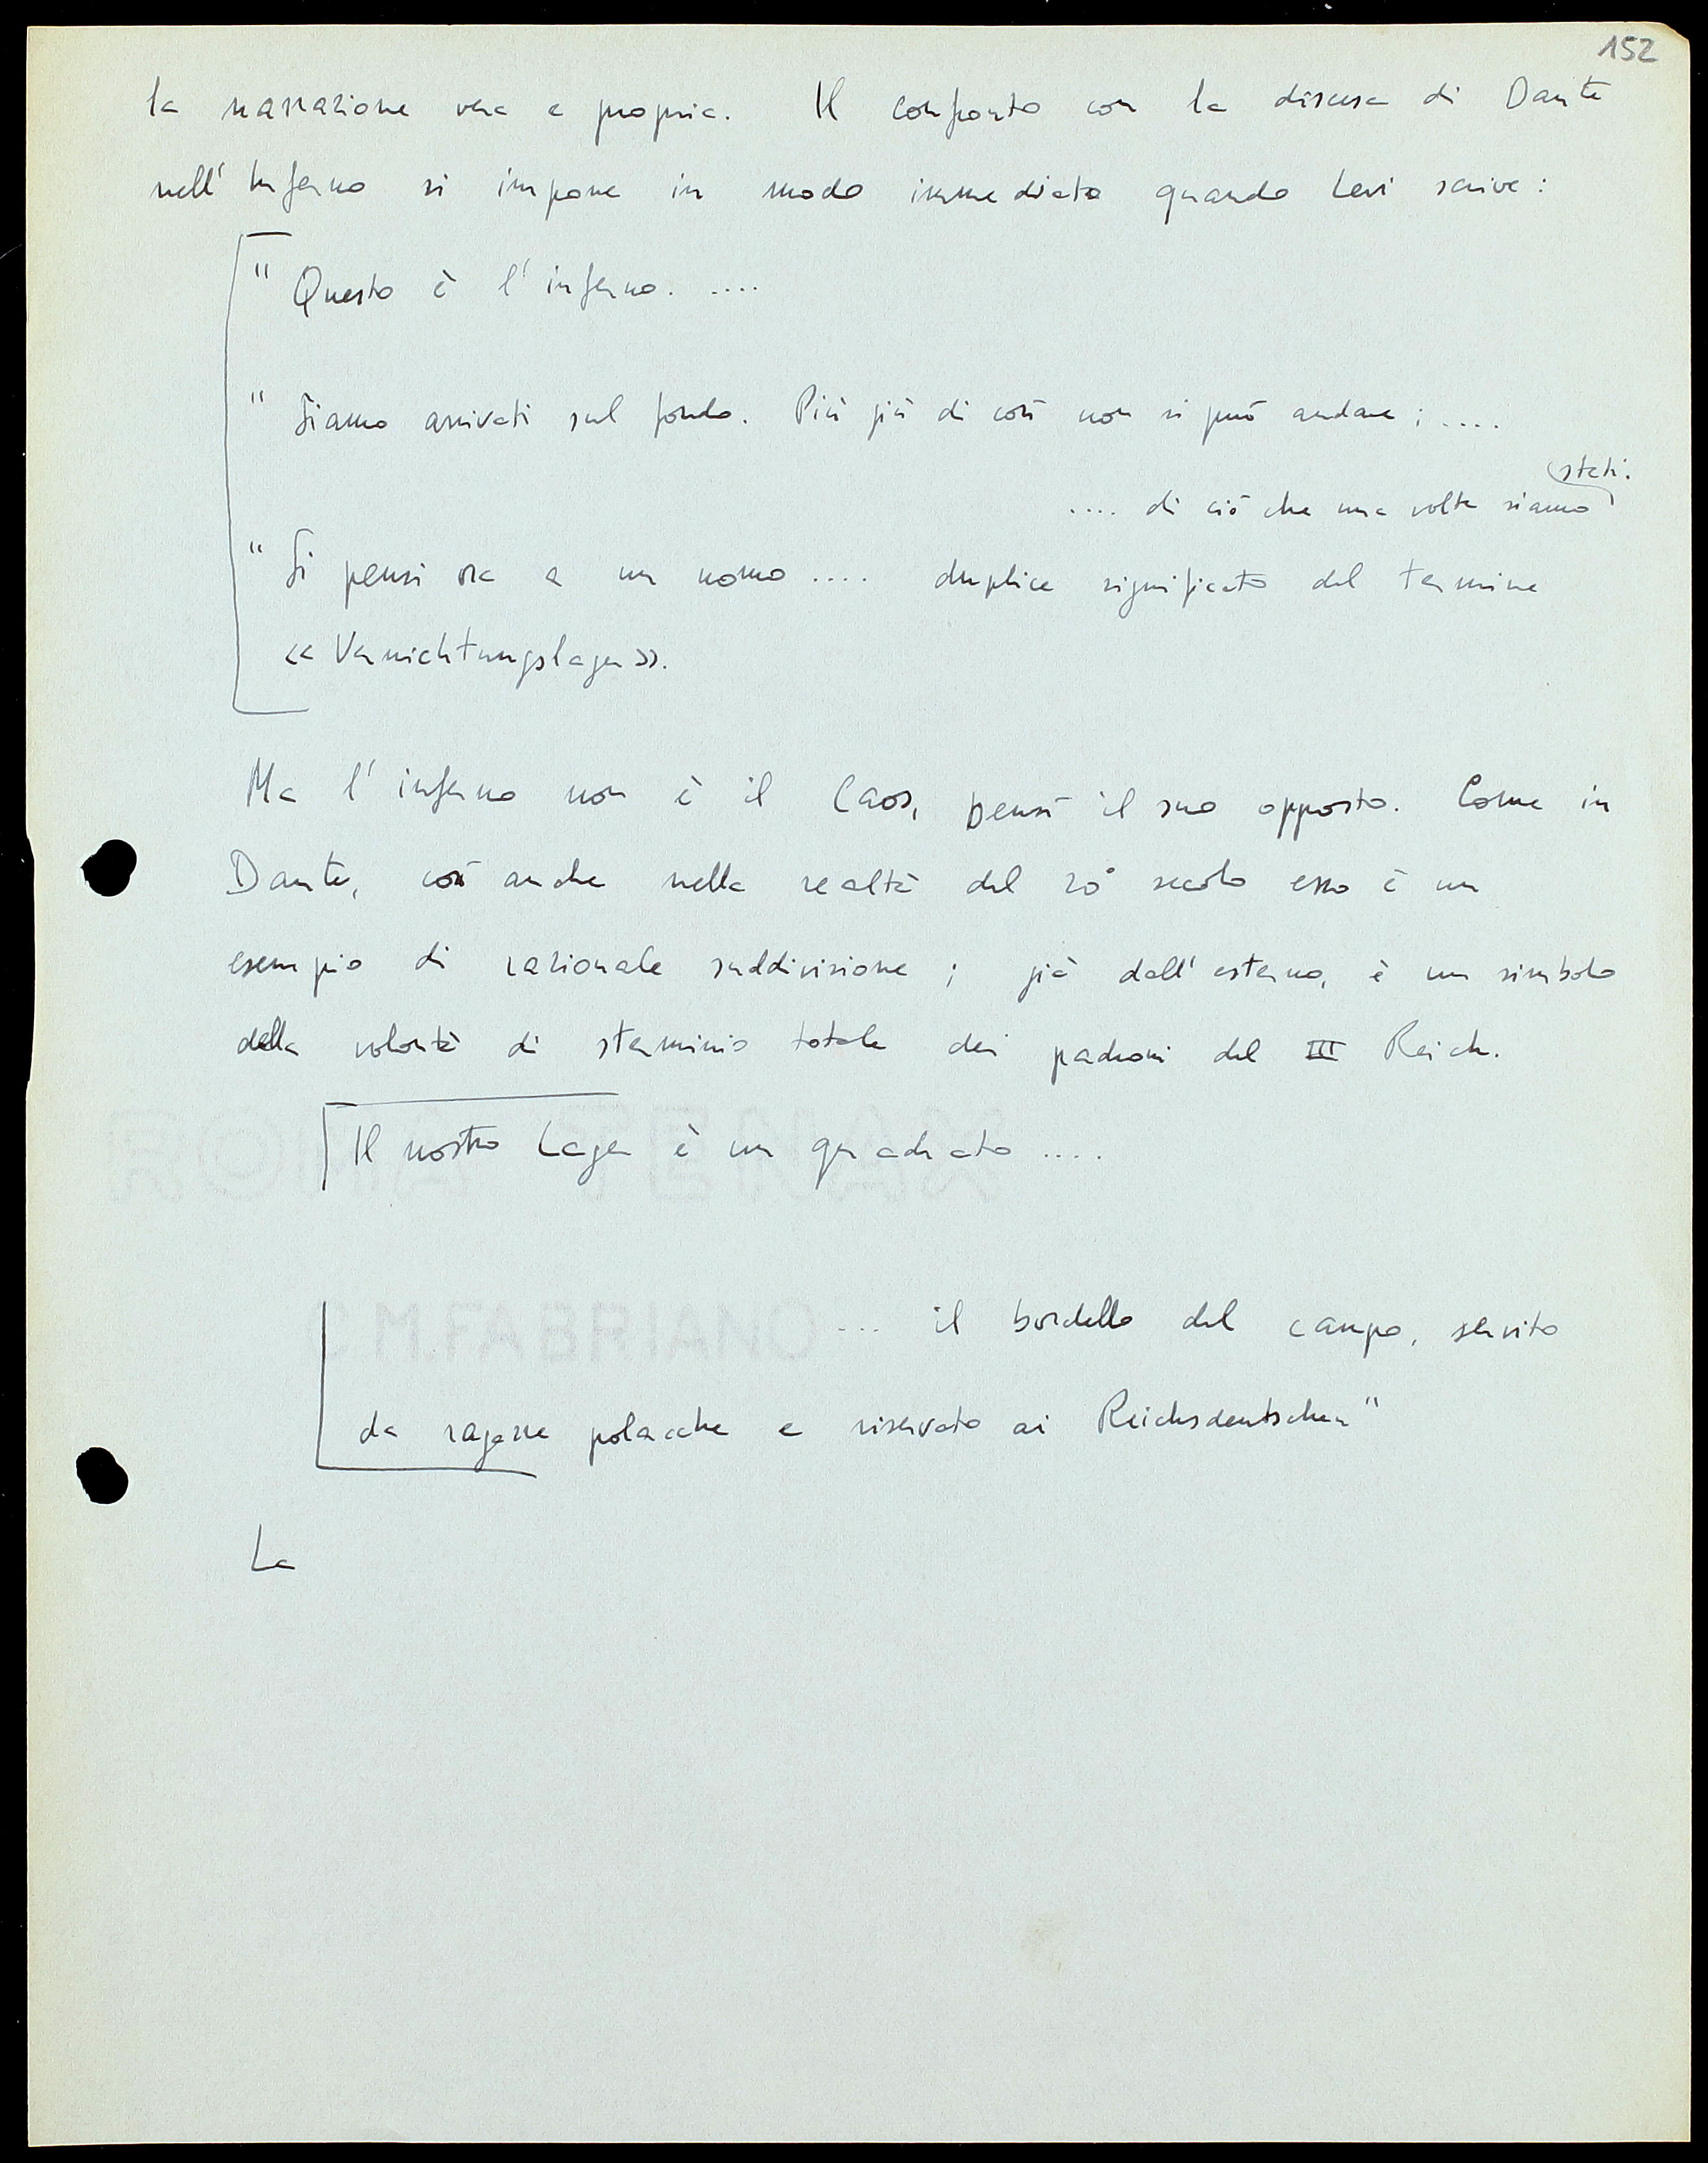 152
la narrazione vera e propria. Il confronto con la discesa di Dante
nell'Inferno si impone in modo immediato quando Levi scrive:
" Questo è l'inferno. ....
" Siamo arrivati sul fondo. Più giù di così non si può andare; ....
stati.
.... di ciò che una volta siamo
" Si pensi ora a un uomo .... duplice significato del termine
<< Vernichtungslager >>.
Ma l'inferno non è il Caos, bensì il suo opposto. Come in
Dante, così anche nella realtà del 20° secolo esso è un
esempio di razionale suddivisione; già dall'esterno, è un simbolo
della volontà di sterminio totale dei padroni del III Reich.
Il nostro Lager è un quadrato ....
... il bordello del campo, servito
da ragazze polacche e riservato ai Reichsdeutschen"
La
C.M.FABRIANO